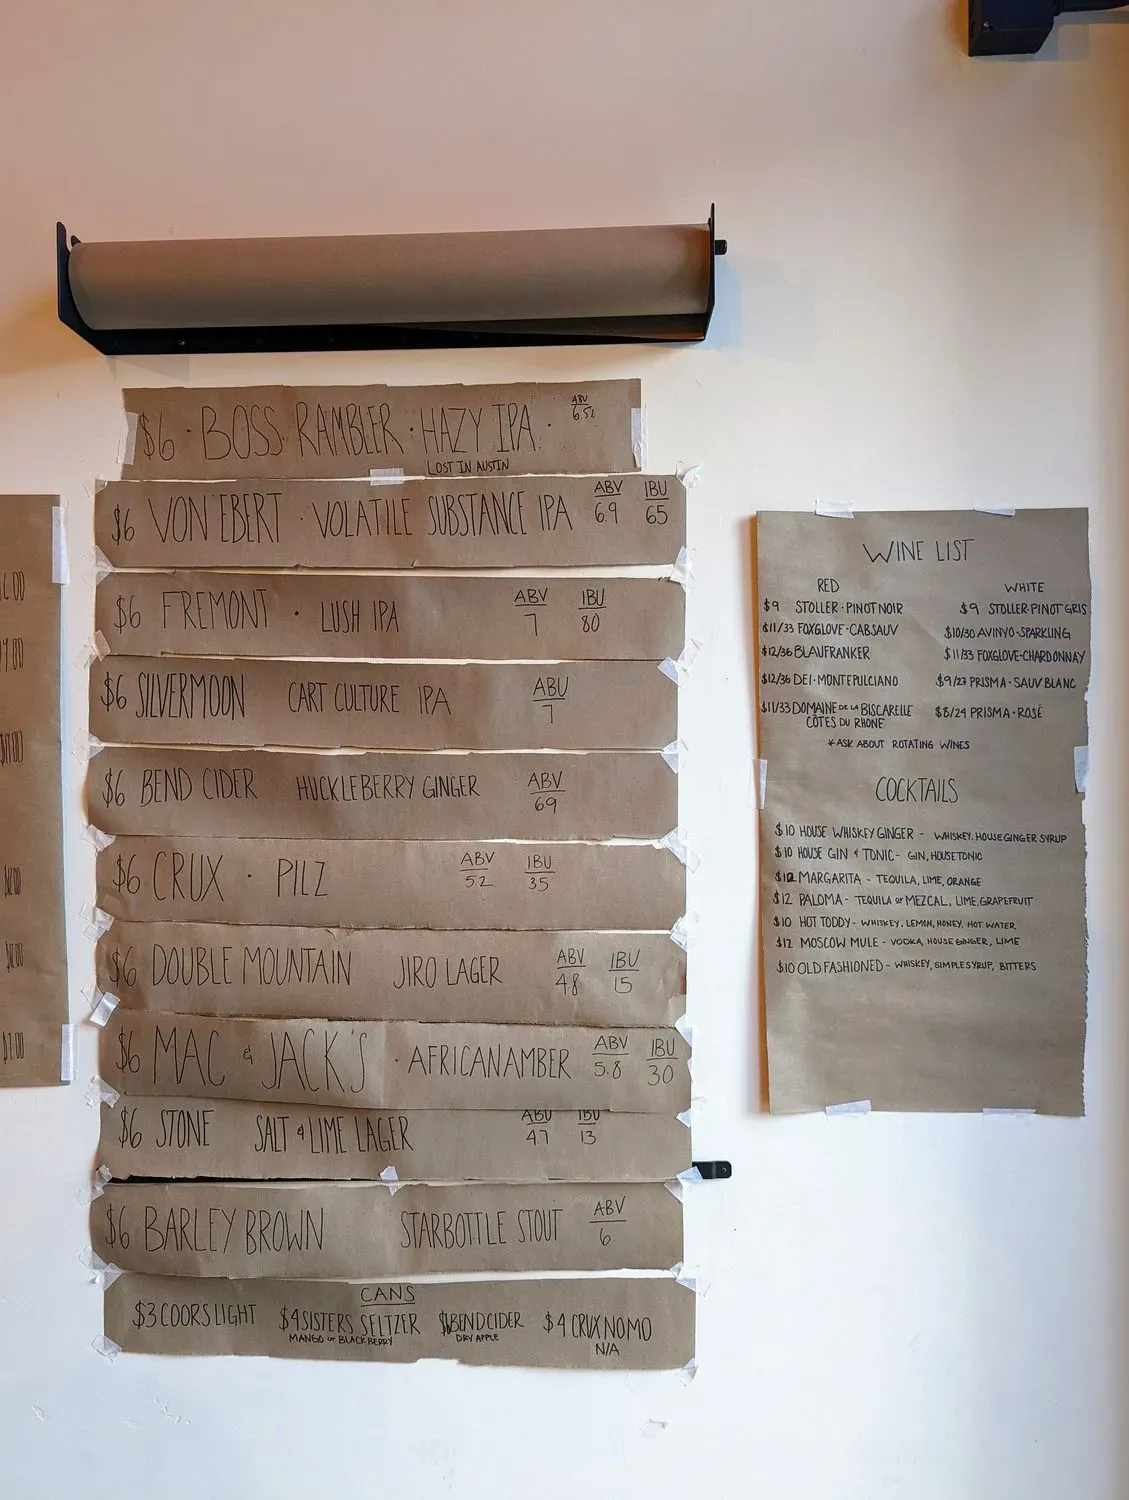 $6 · BOSS RAMBLER · HAZY IPA · ABV 6.5%
LOST IN AUSTIN
$6 VON EBERT · VOLATILE SUBSTANCE IPA ABV 6.9 IBU 65
$6 FREMONT · LUSH IPA ABV 7 IBU 80
$6 SILVERMOON CART CULTURE IPA ABV 7
$6 BEND CIDER HUCKLEBERRY GINGER ABV 69
$6 CRUX · PILZ ABV 52 IBU 35
$6 DOUBLE MOUNTAIN JIRO LAGER ABV 48 IBU 15
$6 MAC & JACK'S · AFRICAN AMBER ABV 5.8 IBU 30
$6 STONE SALT & LIME LAGER ABV 47 IBU 13
$6 BARLEY BROWN STARBOTTLE STOUT ABV 6
CANS
$3 COORS LIGHT $4 SISTERS SELTZER BEND CIDER $4 CRUX NOMO
MANGO or BLACKBERRY DRY APPLE N/A
WINE LIST
RED WHITE
$9 STOLLER · PINOT NOIR $9 STOLLER · PINOT GRIS
$11/33 FOXGLOVE · CAB SAUV $10/30 AVINYO · SPARKLING
$12/36 BLAUFRANKER $11/33 FOXGLOVE · CHARDONNAY
$12/36 DEI · MONTEPULCIANO $9/27 PRISMA · SAUV BLANC
$11/33 DOMAINE DE LA BISCARELLE $8/24 PRISMA · ROSÉ
CÔTES DU RHONE
*ASK ABOUT ROTATING WINES
COCKTAILS
$10 HOUSE WHISKEY GINGER - WHISKEY, HOUSE GINGER SYRUP
$10 HOUSE GIN & TONIC - GIN, HOUSE TONIC
$12 MARGARITA - TEQUILA, LIME, ORANGE
$12 PALOMA - TEQUILA or MEZCAL, LIME, GRAPEFRUIT
$10 HOT TODDY - WHISKEY, LEMON, HONEY, HOT WATER
$12 MOSCOW MULE - VODKA, HOUSE GINGER, LIME
$10 OLD FASHIONED - WHISKEY, SIMPLE SYRUP, BITTERS